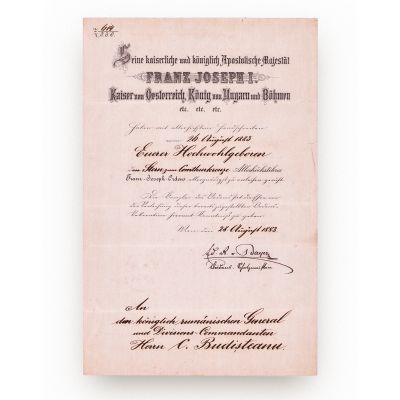 Seine kaiserliche und königlich Apostolische Majestät
FRANZ JOSEPH I.
Kaiser von Oesterreich, König von Ungarn und Böhmen
etc. etc. etc.
haben mit allerhöchstem Handschreiben
vom 26 August 1883
Euerer Hochwohlgeboren
den Stern zum Comthurkreuze Allerhöchstihres
Franz-Joseph-Ordens Allergnädigst zu verleihen geruht.
Wien den 28 August 1883.
An
den königlich rumänischen General
und Divisions-Commandanten
Herrn C. Budisteanu.